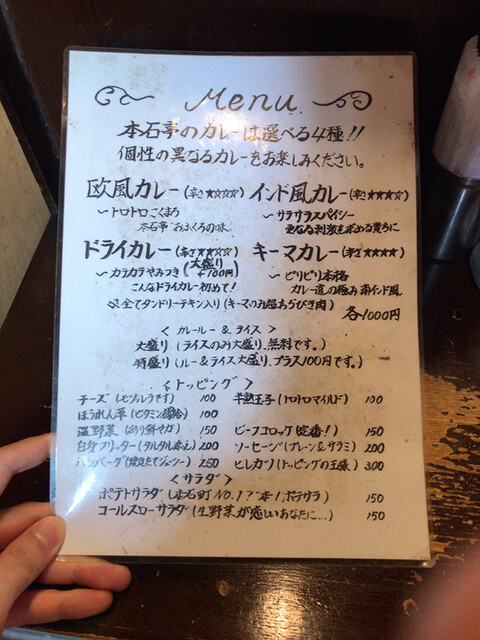 Menu
本石亭のカレーは選べる4種!!
個性の異なるカレーをお楽しみください。
欧風カレー(辛さ★☆☆☆)
〜トロトロこくまろ
本石亭"おふくろの味"
インド風カレー(辛さ★★★☆)
〜サラサラスパイシー
更なる刺激を求める貴方に
ドライカレー(辛さ★★☆☆)(大盛り+100円)
〜カラカラやみつき
こんなドライカレー初めて!
キーマカレー(辛さ★★★★)
〜ピリピリ本格
カレー道の極み南インド風
全てタンドリーチキン入り(キーマのみ超あらびき肉)
各1000円
<カレールー&ライス>
大盛り(ライスのみ大盛り、無料です。)
特盛り(ルー&ライス大盛り、プラス100円です。)
<トッピング>
チーズ(モヅルラです) 100 半熟玉子(トロトロマイルド) 100
ほうれん草(ビタミン補給) 100
温野菜(彩り鮮やか) 150 ビーフコロッケ(定番!) 150
白身フリッター(タルタル添え) 200 ソーセージ(プレーン&サラミ) 200
ハンバーグ(焼きたてジューシー) 250 ヒレカツ(トッピングの王様) 300
<サラダ>
ポテトサラダ(本石町NO.1?本1ポテサラ) 150
コールスローサラダ(生野菜が恋しいあなたに…) 150